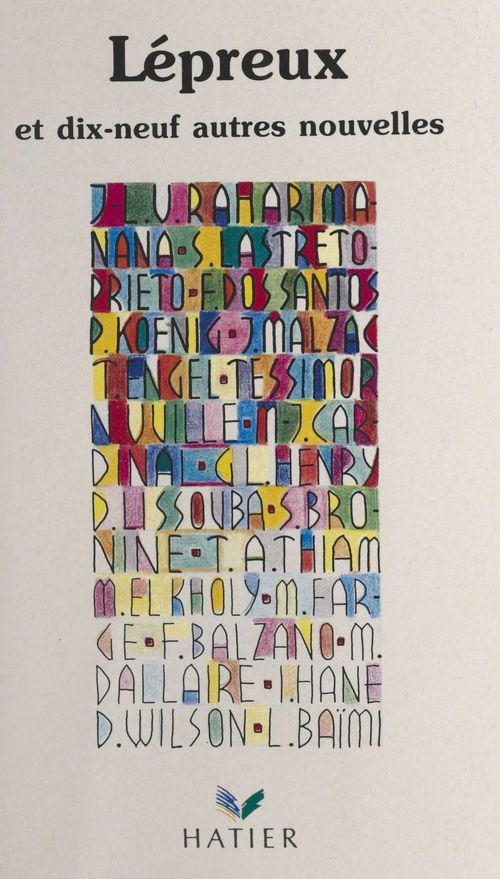 Lépreux
et dix-neuf autres nouvelles
J-L.V.RAHARIMA-
NANA·S.LASTRETO-
PRIETO·F.DOS SANTOS
P.KOENIG·J.MALZAC
T.ENGEL·TESSIMOR
NIUVILLE·M-J.CAR-
DINAL·G.L.HENRY
D.LISSOUBA·S.BRO-
NINE·T.A.THIAM
M.ELKHOLY·M.FAR-
GE·F.BALZANO·M.
DALLAIRE·I.HANE
D.WILSON·L.BAÏMI
HATIER